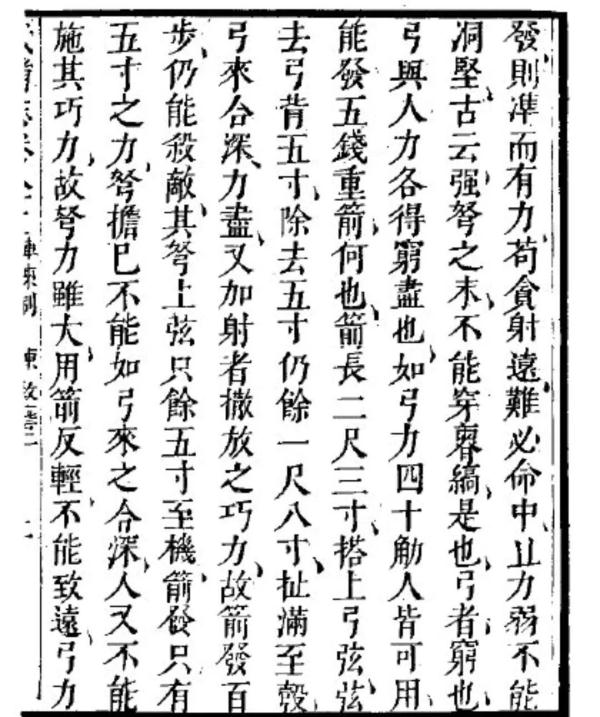 發則準而有力苟貪射遠難必命中且力弱不能
洞堅古云强弩之末不能穿魯縞是也弓者窮也
弓與人力各得窮盡也如弓力四十觔人皆可用
能發五錢重箭何也箭長二尺三寸搭上弓弦弦
去弓背五寸除去五寸仍餘一尺八寸扯滿至彀
弓來合深力盡又加射者撒放之巧力故箭發百
步仍能殺敵其弩上弦只餘五寸至機箭發只有
五寸之力弩擔已不能如弓來之合深人又不能
施其巧力故弩力雖大用箭反輕不能致遠弓力